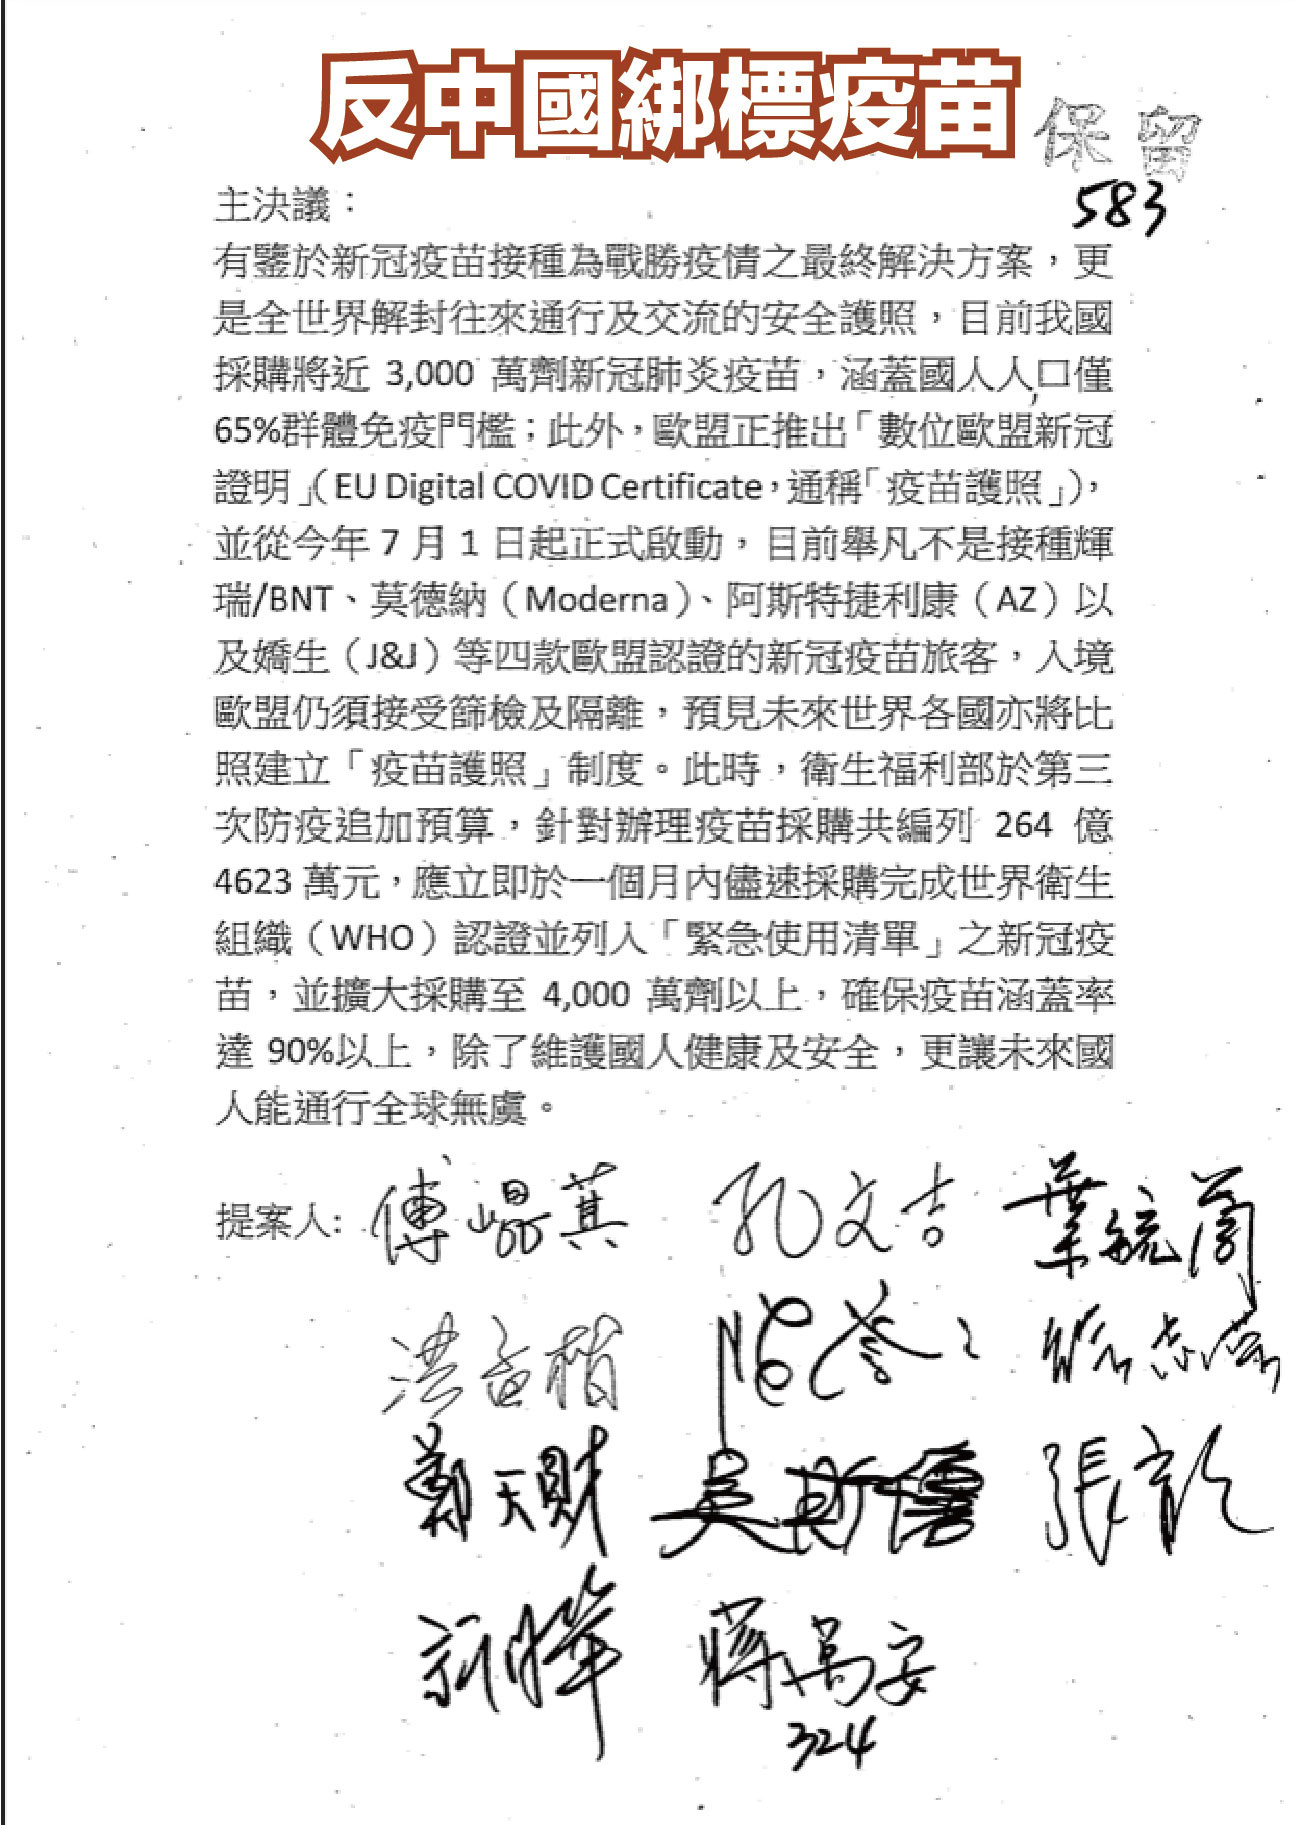 反中國綁標疫苗
保留
583
主決議：
有鑒於新冠疫苗接種為戰勝疫情之最終解決方案，更
是全世界解封往來通行及交流的安全護照，目前我國
採購將近 3,000 萬劑新冠肺炎疫苗，涵蓋國人人口僅
65%群體免疫門檻；此外，歐盟正推出「數位歐盟新冠
證明」（EU Digital COVID Certificate，通稱「疫苗護照」），
並從今年 7 月 1 日起正式啟動，目前舉凡不是接種輝
瑞/BNT、莫德納（Moderna）、阿斯特捷利康（AZ）以
及嬌生（J&J）等四款歐盟認證的新冠疫苗旅客，入境
歐盟仍須接受篩檢及隔離，預見未來世界各國亦將比
照建立「疫苗護照」制度。此時，衛生福利部於第三
次防疫追加預算，針對辦理疫苗採購共編列 264 億
4623 萬元，應立即於一個月內儘速採購完成世界衛生
組織（WHO）認證並列入「緊急使用清單」之新冠疫
苗，並擴大採購至 4,000 萬劑以上，確保疫苗涵蓋率
達 90%以上，除了維護國人健康及安全，更讓未來國
人能通行全球無虞。
提案人: 傅崐萁 孔文吉 葉毓蘭
洪孟楷 徐志榮
鄭天財 吳斯懷
蔣萬安
324